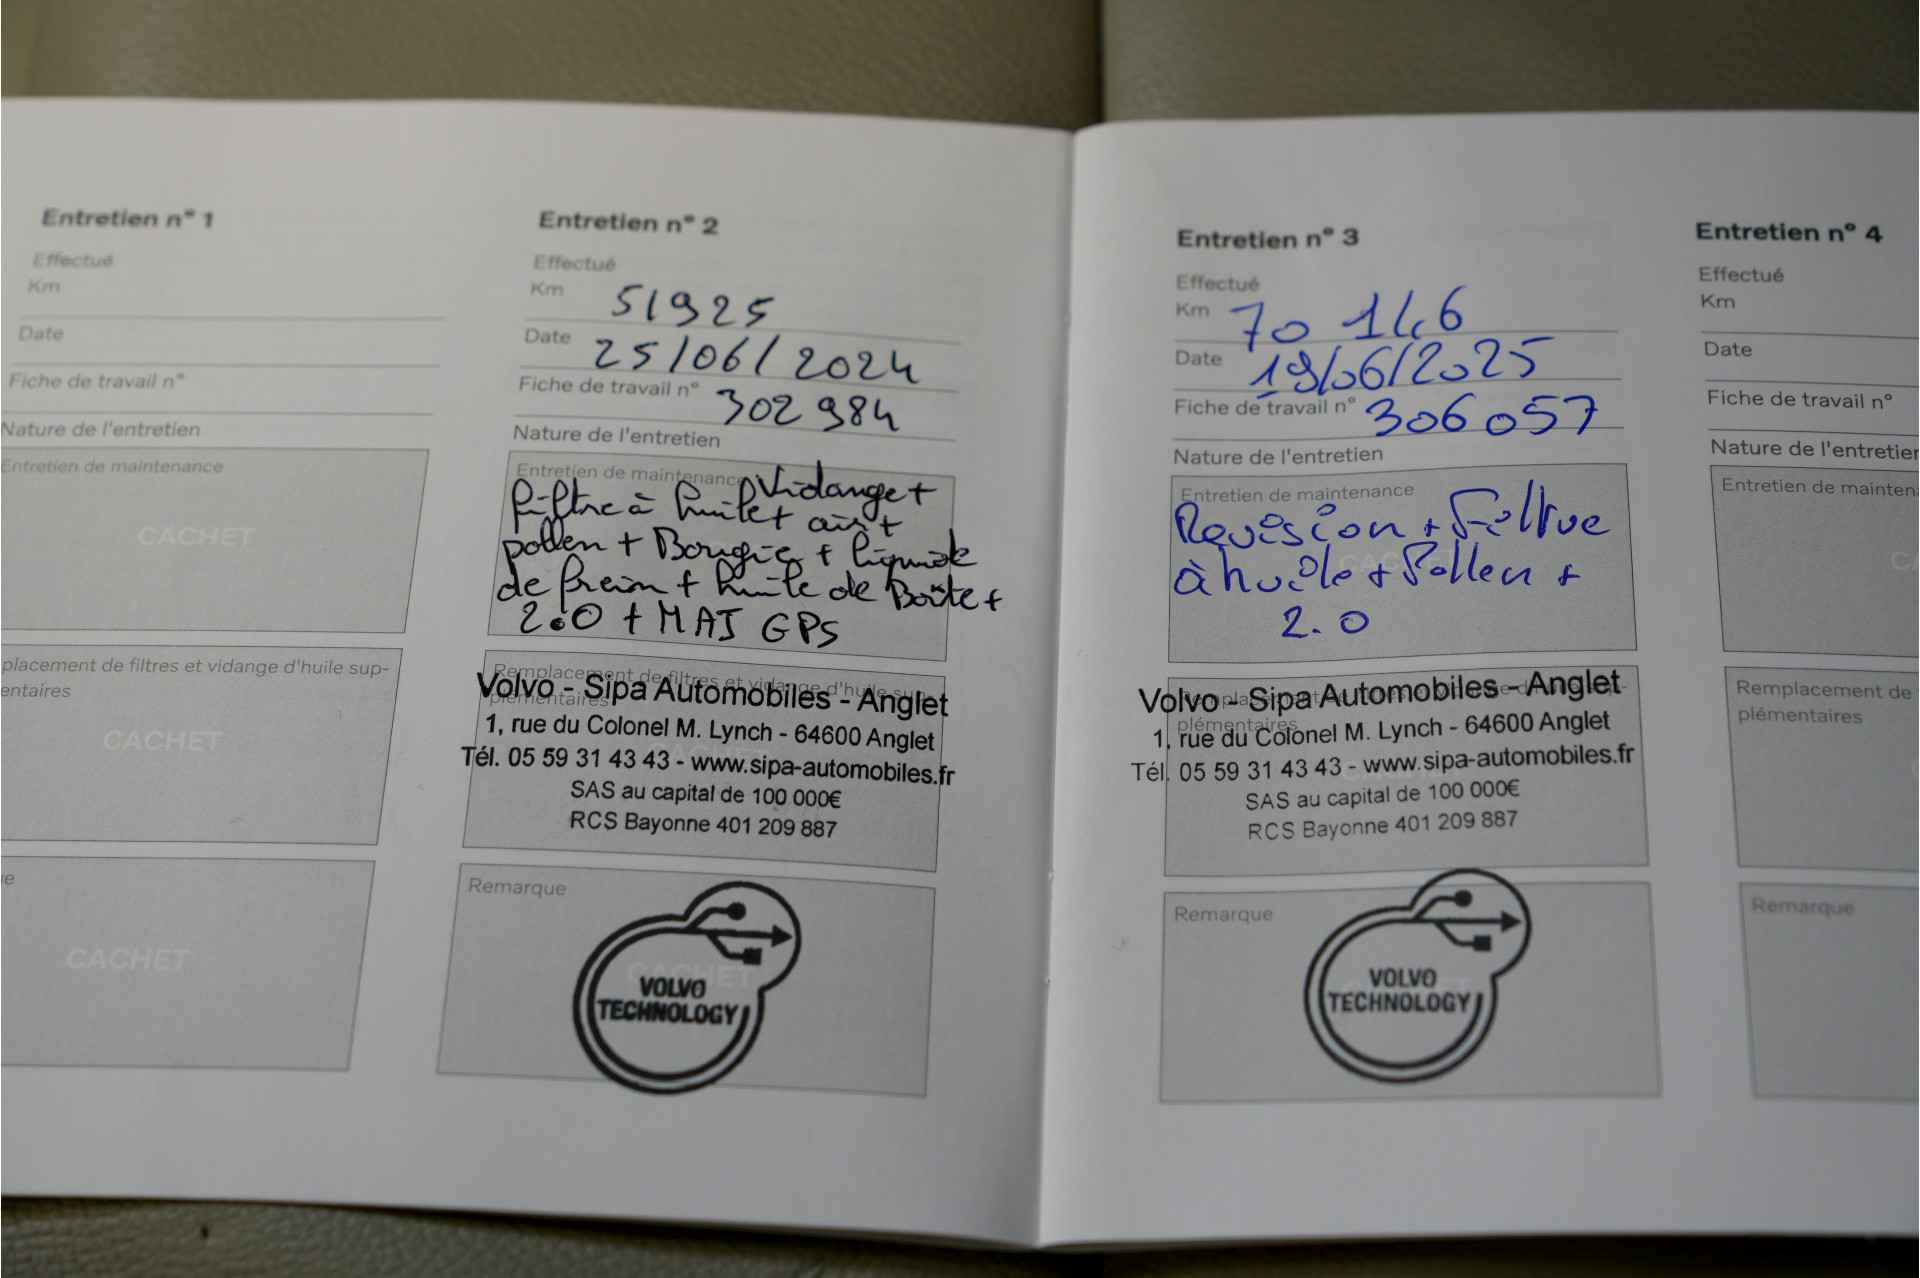 Entretien n° 1
Effectué
Km
Date
Fiche de travail n°
Nature de l'entretien
Entretien de maintenance
CACHET
placement de filtres et vidange d'huile sup-
entaires
CACHET
e
CACHET
Entretien n° 2
Effectué
Km 51925
Date 25/06/2024
Fiche de travail n° 302984
Nature de l'entretien
Entretien de maintenance Vidange +
filtre à huile + air +
pollen + Bougie + liquide
de frein + huile de Boîte +
2.0 + MAJ GPS
Remplacement de filtres et vidange d'huile sup-
plémentaires
Volvo - Sipa Automobiles - Anglet
1, rue du Colonel M. Lynch - 64600 Anglet
Tél. 05 59 31 43 43 - www.sipa-automobiles.fr
SAS au capital de 100 000€
RCS Bayonne 401 209 887
Remarque
CACHET
VOLVO
TECHNOLOGY
Entretien n° 3
Effectué
Km 70 146
Date 19/06/2025
Fiche de travail n° 306057
Nature de l'entretien
Entretien de maintenance
Revision + Filtre
à huile + Pollen +
2.0
plémentaires
Volvo - Sipa Automobiles - Anglet
1, rue du Colonel M. Lynch - 64600 Anglet
Tél. 05 59 31 43 43 - www.sipa-automobiles.fr
SAS au capital de 100 000€
RCS Bayonne 401 209 887
Remarque
VOLVO
TECHNOLOGY
Entretien n° 4
Effectué
Km
Date
Fiche de travail n°
Nature de l'entretien
Entretien de mainten
Remplacement de
plémentaires
Remarque